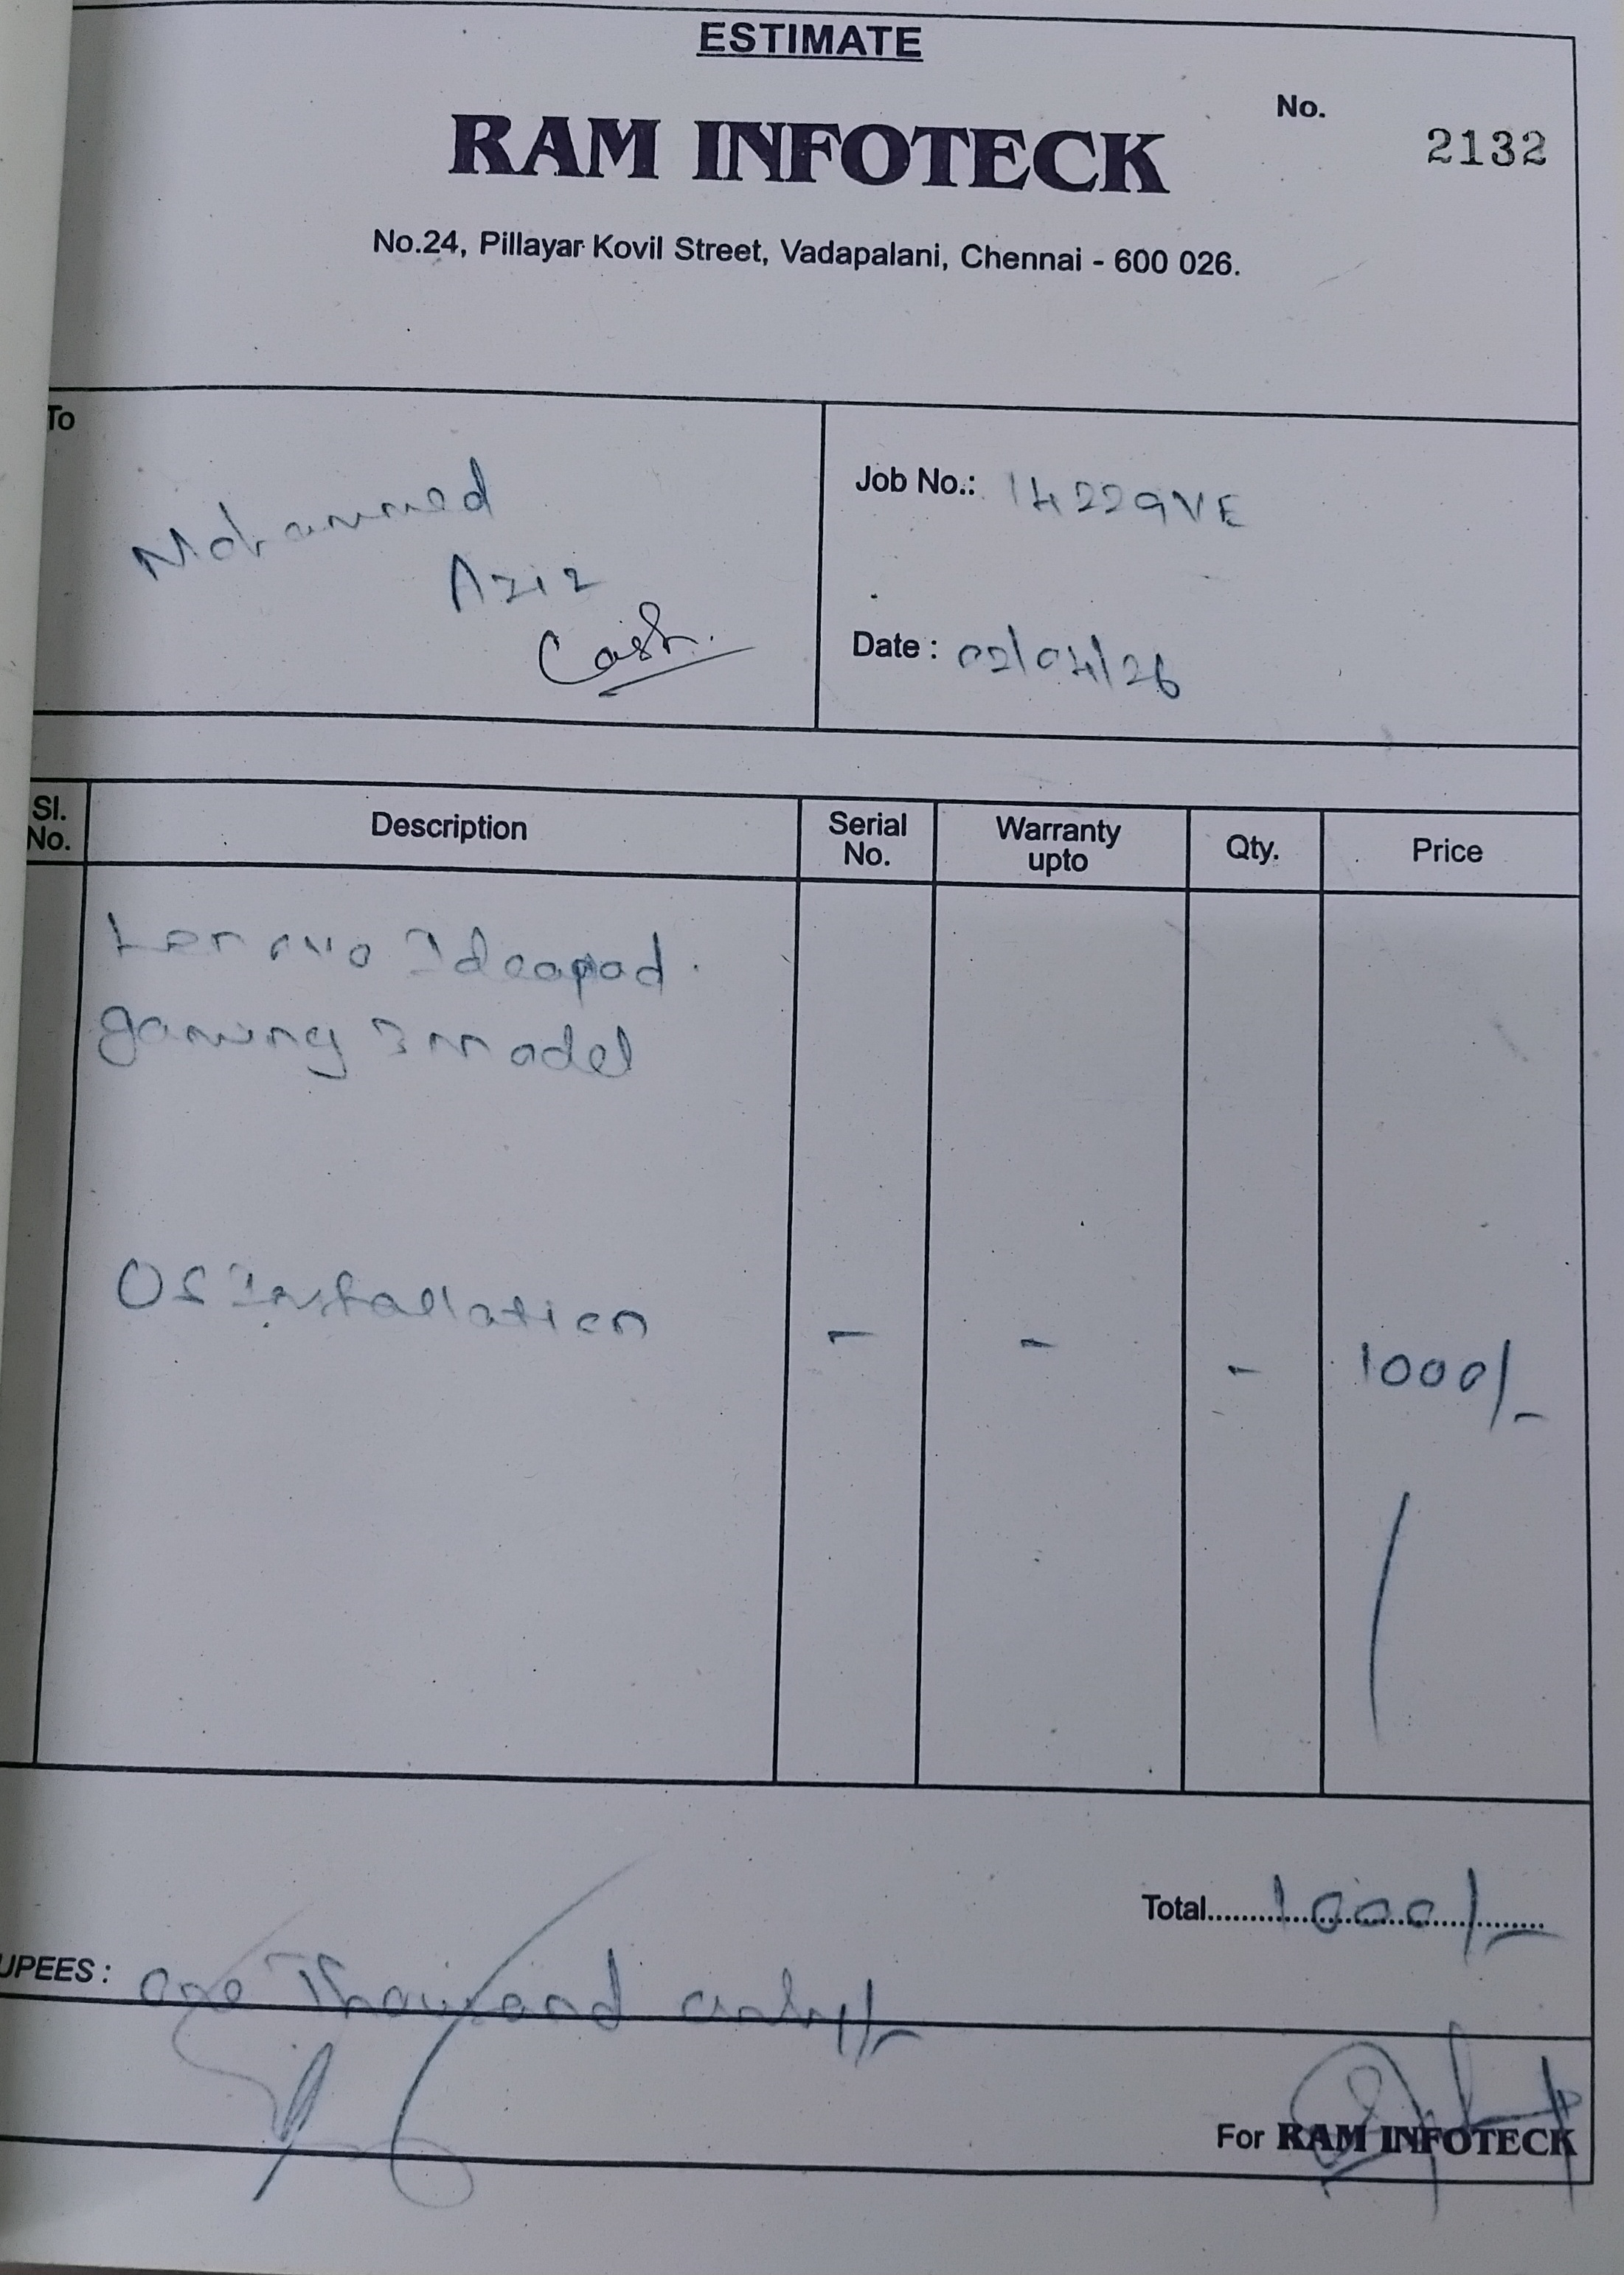 ESTIMATE
No.
2132
RAM INFOTECK
No.24, Pillayar Kovil Street, Vadapalani, Chennai - 600 026.
To
Mohammed
Aziz
Cash.
Job No.: 14229VE
Date : 02/04/26
Sl. No. Description Serial No. Warranty upto Qty. Price
Lenovo Ideapad
gaming 3 model
OS Installation - - - 1000/-
Total 1000/-
UPEES : One Thousand only/-
For RAM INFOTECK